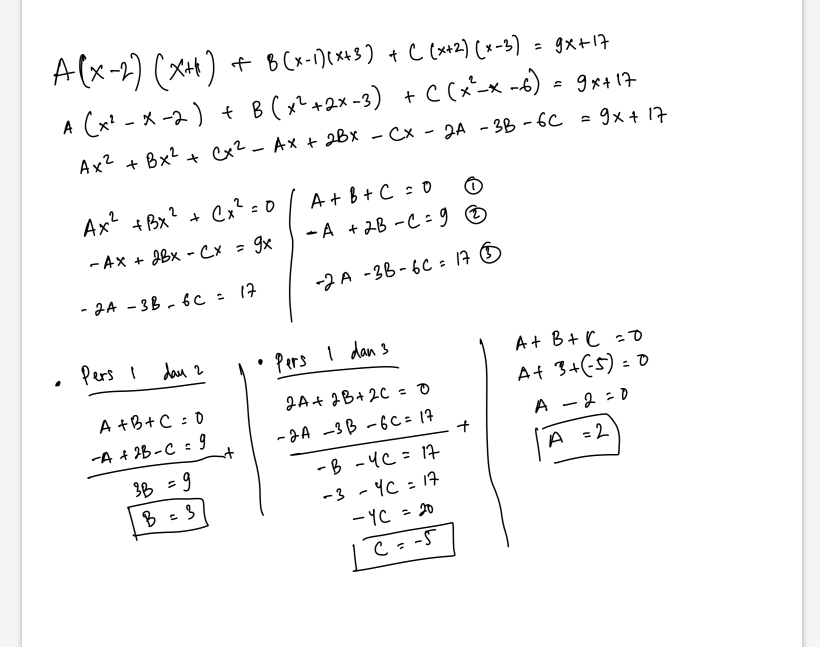 A(x-2)(x+1) + B(x-1)(x+3) + C(x+2)(x-3) = 9x+17
A(x² - x - 2) + B(x² + 2x - 3) + C(x² - x - 6) = 9x+17
Ax² + Bx² + Cx² - Ax + 2Bx - Cx - 2A - 3B - 6C = 9x + 17
Ax² + Bx² + Cx² = 0
-Ax + 2Bx - Cx = 9x
-2A - 3B - 6C = 17
A + B + C = 0 ①
-A + 2B - C = 9 ②
-2A - 3B - 6C = 17 ③
• Pers 1 dan 2
A + B + C = 0
-A + 2B - C = 9 +
3B = 9
B = 3
• Pers 1 dan 3
2A + 2B + 2C = 0
-2A - 3B - 6C = 17 +
-B - 4C = 17
-3 - 4C = 17
-4C = 20
C = -5
A + B + C = 0
A + 3 + (-5) = 0
A - 2 = 0
A = 2